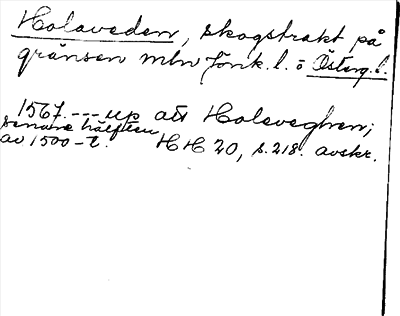 Holaveden, skogstrakt på
gränsen mln Jönk. l. o Österg. l.
1567. --- up att Holeveghen;
senare hälften
av 1500-t. HH 20, s. 218. avskr.